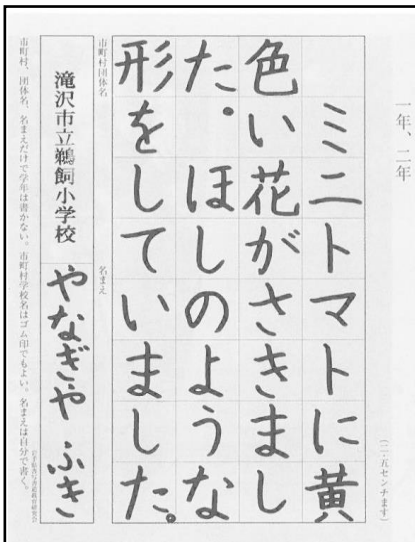 一年、二年
(二・五センチます)
ミニトマトに黄
色い花がさきまし
た。ほしのような
形をしていました。
市町村団体名
滝沢市立鵜飼小学校
名まえ
やなぎや ふき
市町村、団体名、名まえだけで学年は書かない。市町村学校名はゴム印でもよい。名まえは自分で書く。